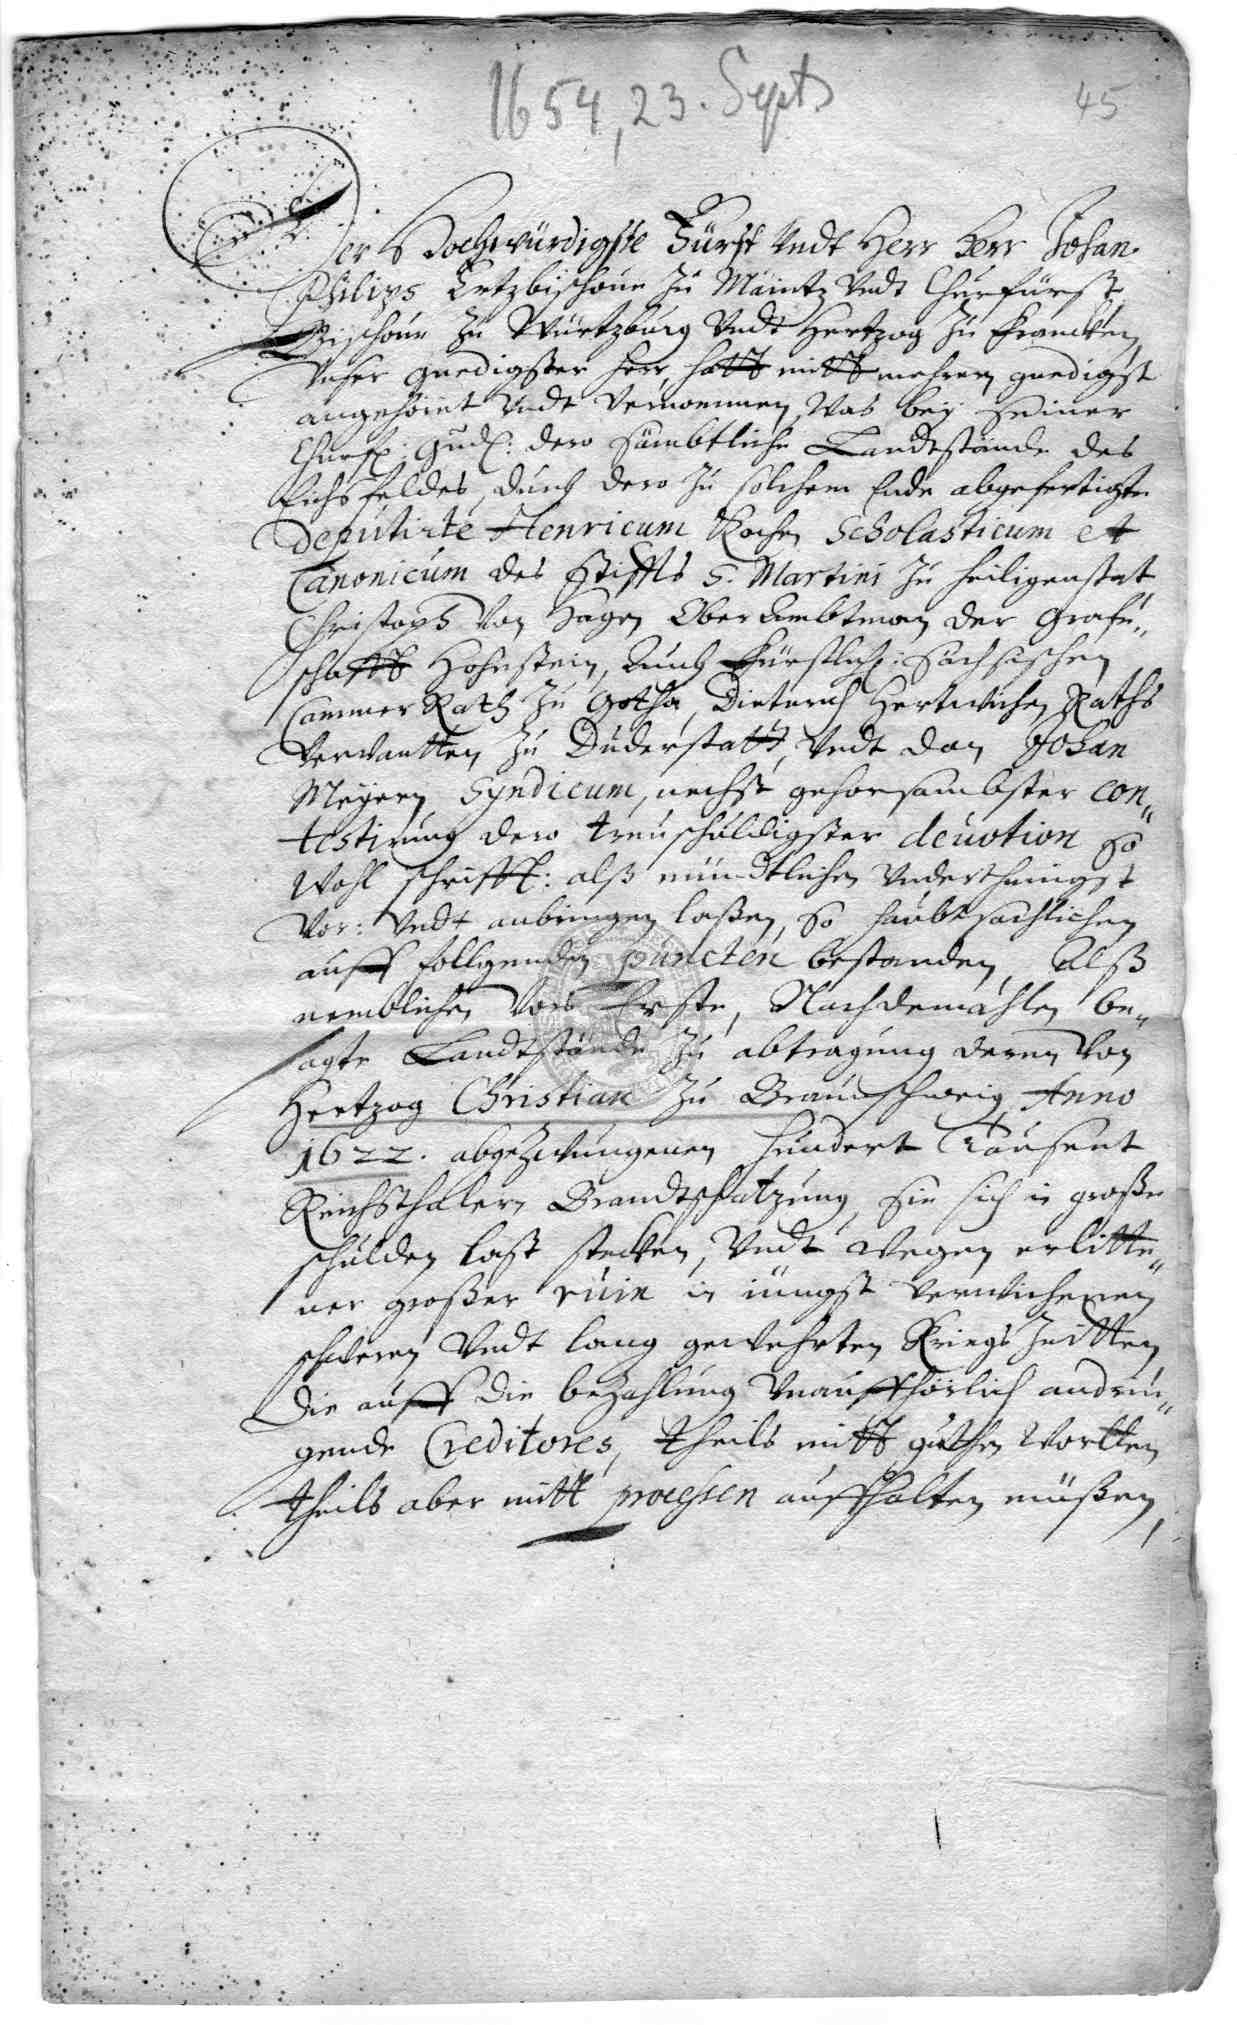 1654, 23. Sept
45
Der Hochwürdigste Fürst Vndt Herr Herr Johan
Philips Ertzbischoue zu Maintz Vndt Churfürst
Bischoue zu Würtzburg Vndt Hertzog zu Francken,
Vnser gnedigster Herr, hatt mitt mehrem gnedigst
angehöret Vndt Vernommen, Was bey Seiner
Churf: Gnd: dero sämbtliche Landtstände des
Eichsfeldes, durch dero zu solchem Ende abgefertigte
Deputirte Henricum Kochen Scholasticum et
Canonicum des Stiffts S. Martini zu Heiligenstat
Christoph Von Hagen OberAmbtman der Graf„
schafft Hohnstein, Auch Fürstlich: Sächsischen
CammerRath zu Gotha, Dieterich Hertwichen Raths
Verwantten zu Duderstatt, Vndt dan Johan
Meyern Syndicum, nechst gehorsambster con„
testirung dero treuschuldigster deuotion so
Wohl schrifftl: alß mündtlichen Vnderthenigst
Vor: Vndt anbringen laßen, so haubtsachlichen
auff follgenden puncten bestanden, Alß
nemblichen Vors Erste, Nachdemahlen be„
sagte Landtstände zu abtragung deren Von
Hertzog Christian zu Braunschweig Anno
1622. abgezwungenen hundert Tausent
Reichsthalern Brandtschatzung, sie sich in große
schulden last stecken, Vndt wegen erlitte„
ner großer ruin in jüngst verwichenen
schweren Vndt lang gewehrten Kriegs Zeitten
Die auff die bezahlung Vnauffhörlich andrin„
gende Creditores, theils mitt guthen Wortten
theils aber mitt processen auffhalten müßen,